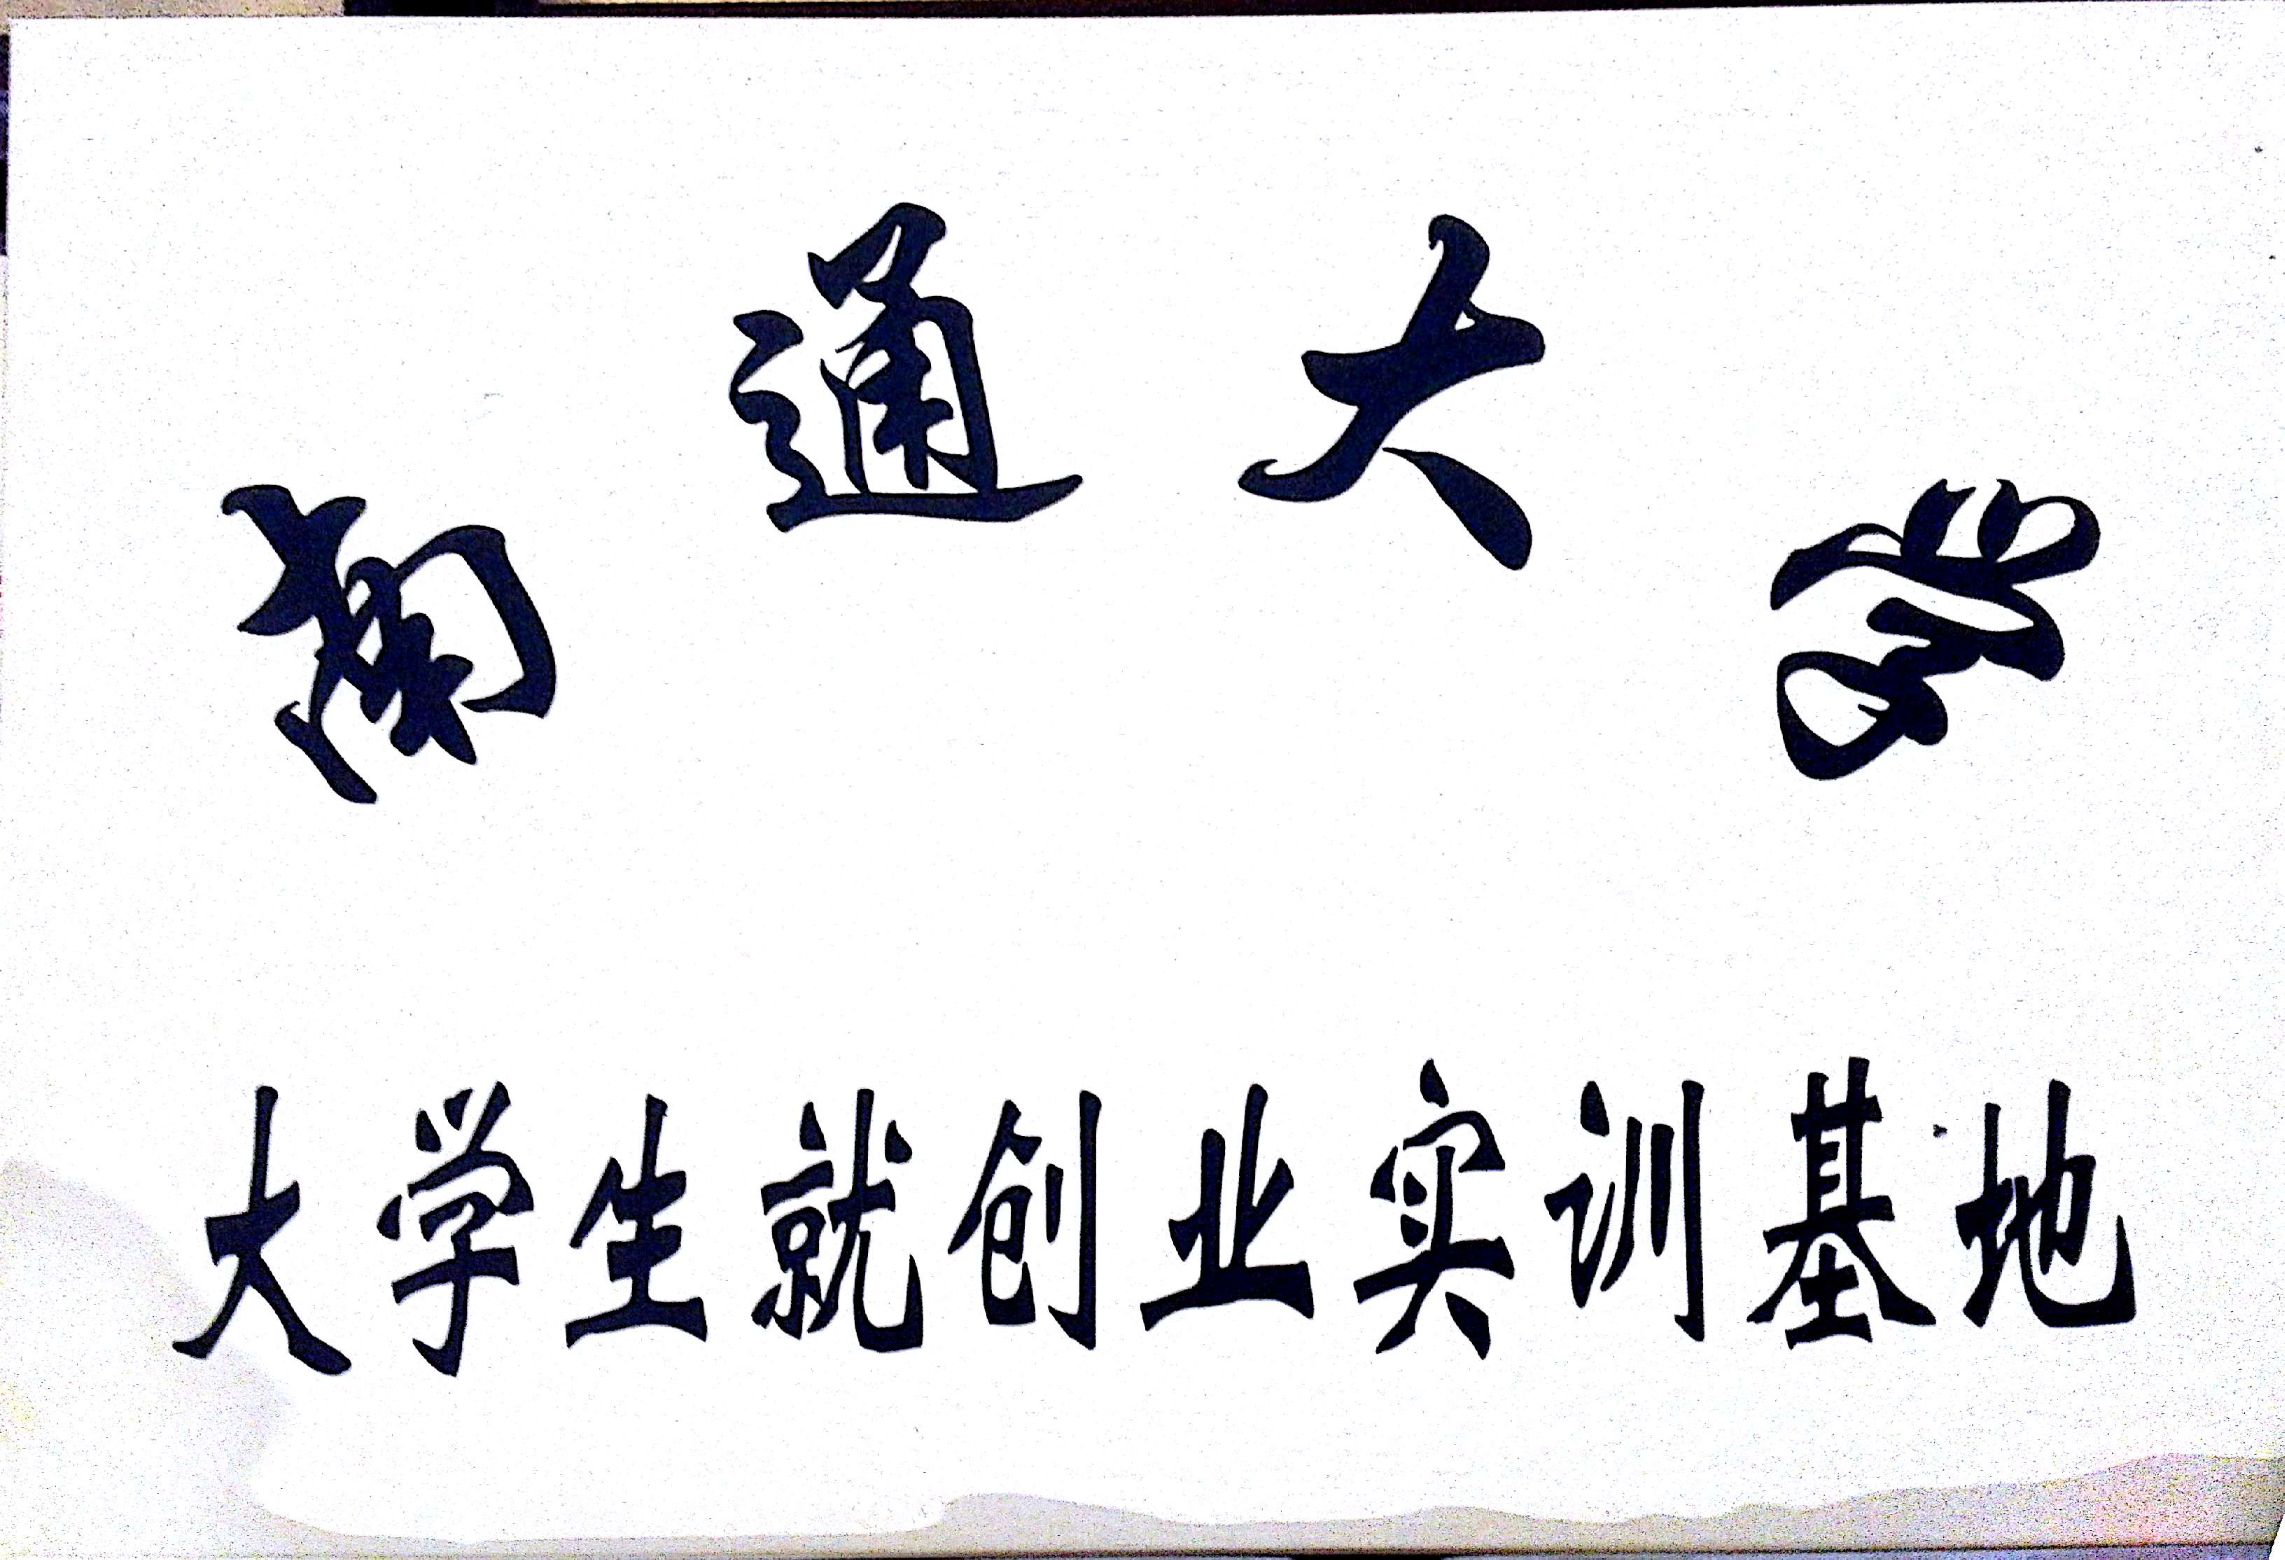 南通大学
大学生就创业实训基地